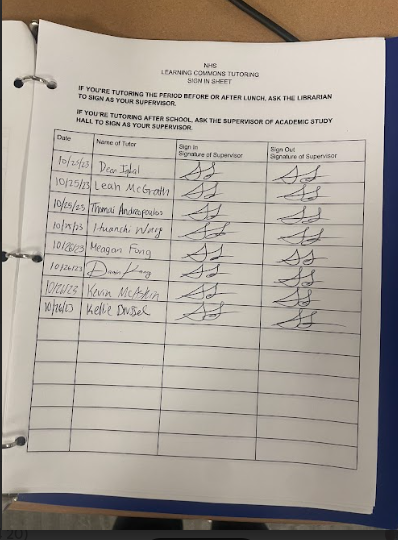 NHS
LEARNING COMMONS TUTORING
SIGN IN SHEET
IF YOU'RE TUTORING THE PERIOD BEFORE OR AFTER LUNCH, ASK THE LIBRARIAN
TO SIGN AS YOUR SUPERVISOR.
IF YOU'RE TUTORING AFTER SCHOOL, ASK THE SUPERVISOR OF ACADEMIC STUDY
HALL TO SIGN AS YOUR SUPERVISOR.
Date Name of Tutor Sign In Signature of Supervisor Sign Out Signature of Supervisor
10/25/23 Iqbal SS SS
10/25/23 Leah McGrath SS SS
10/25/23 Andreopoulos SS SS
Huanchi SS SS
10/26/23 Meagan Fong SS SS
10/26/23 SS SS
10/26/23 Kevin SS SS
10/26/23 Kellie SS SS